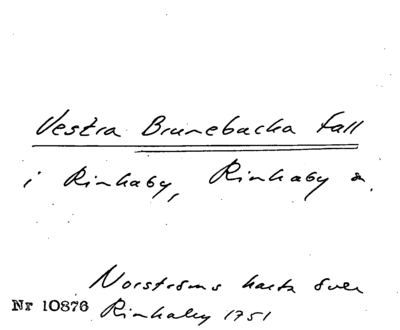 Vestra Brunebacka fall
i Rinkaby, Rinkaby s.
Norströms karta över
Nr 10876 Rinkaby 1751